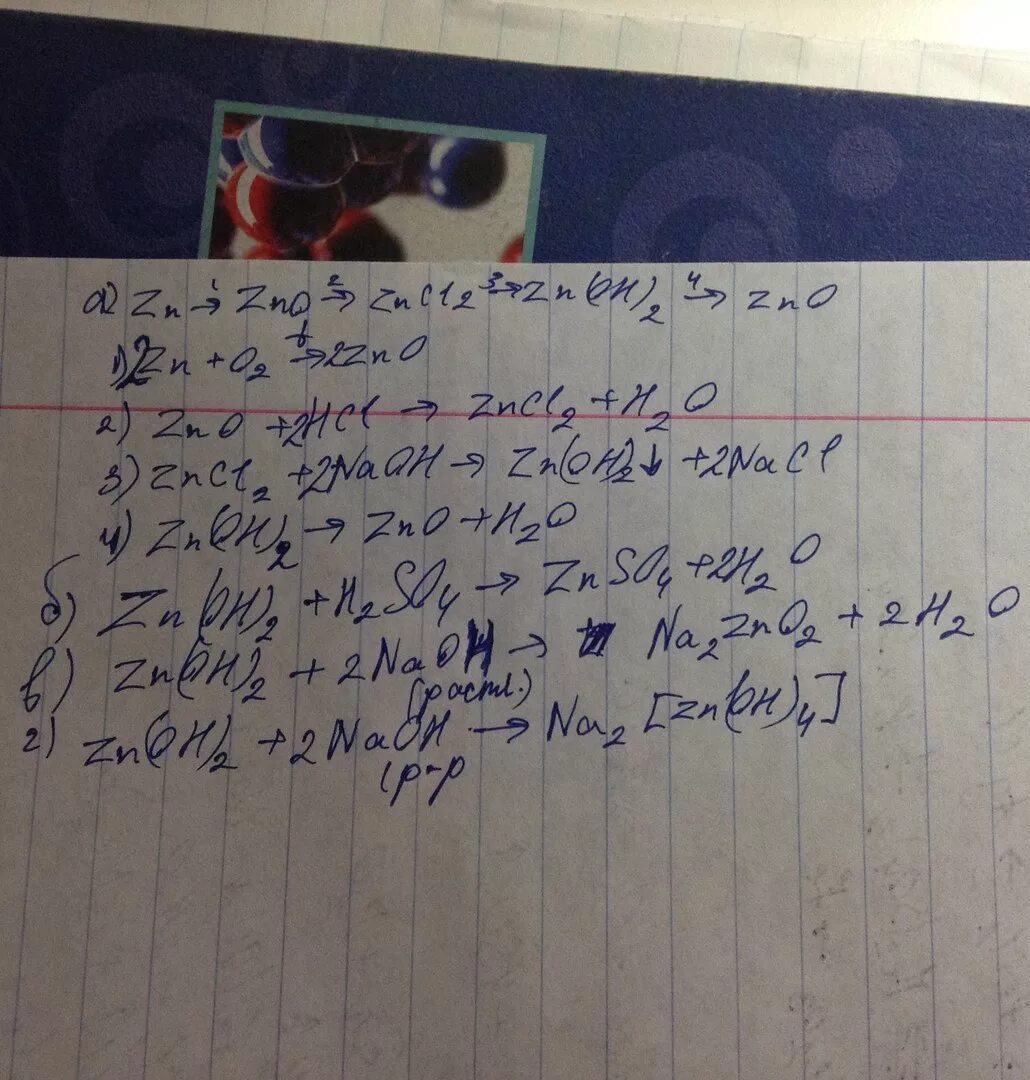 а) Zn ¹→ ZnO ²→ ZnCl₂ ³→ Zn(OH)₂ ⁴→ ZnO
1) 2Zn + O₂ t→ 2ZnO
2) ZnO + 2HCl → ZnCl₂ + H₂O
3) ZnCl₂ + 2NaOH → Zn(OH)₂↓ + 2NaCl
4) Zn(OH)₂ → ZnO + H₂O
б) Zn(OH)₂ + H₂SO₄ → ZnSO₄ + 2H₂O
в) Zn(OH)₂ + 2NaOH → Na₂ZnO₂ + 2H₂O
(распл.)
г) Zn(OH)₂ + 2NaOH → Na₂[Zn(OH)₄]
(р-р